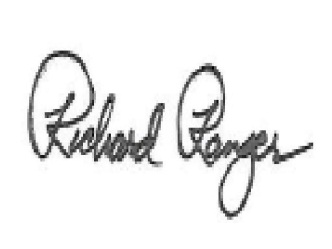 Richard Ranger